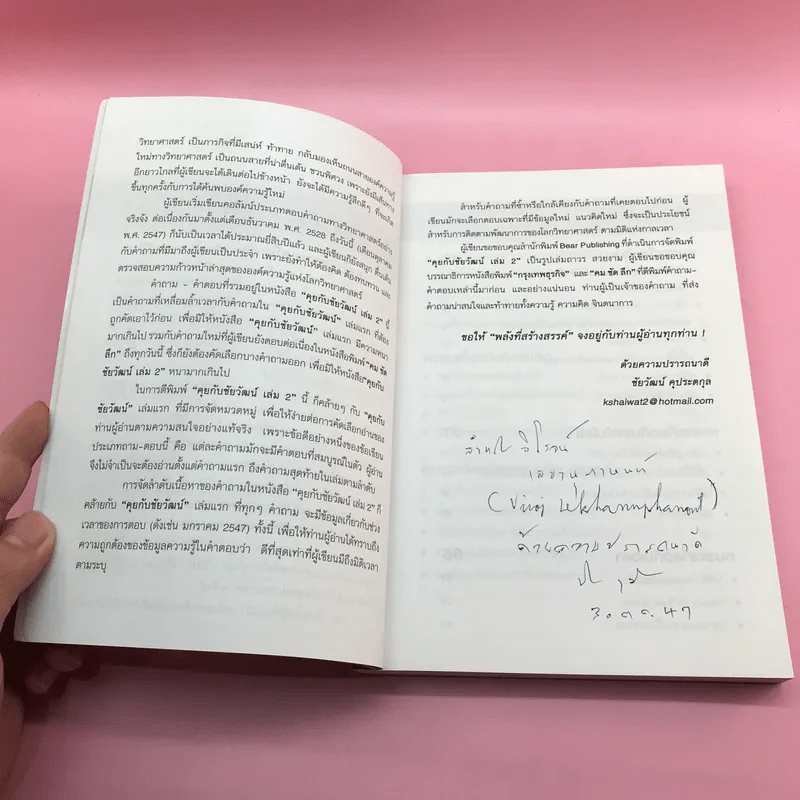 วิทยาศาสตร์ เป็นภารกิจที่มีเสน่ห์ ท้าทาย กลับมองเห็นถนนสายองค์ความรู้
ใหม่ทางวิทยาศาสตร์ เป็นถนนสายที่น่าตื่นเต้น ชวนพิศวง เพราะยังมีเส้นทาง
อีกยาวไกลที่ผู้เขียนจะได้เดินต่อไปข้างหน้า ยังจะได้มีความรู้สึกดีๆ ที่จะเกิด
ขึ้นทุกครั้งกับการได้ค้นพบองค์ความรู้ใหม่
ผู้เขียนเริ่มเขียนคอลัมน์ประเภทตอบคำถามทางวิทยาศาสตร์อย่าง
จริงจัง ต่อเนื่องกันมาตั้งแต่เดือนธันวาคม พ.ศ. 2528 ถึงวันนี้ (เดือนตุลาคม
พ.ศ. 2547) ก็นับเป็นเวลาได้ประมาณยี่สิบปีแล้ว และผู้เขียนก็ยังสนุก ตื่นเต้น
กับคำถามที่มีมาถึงผู้เขียนเป็นประจำ เพราะยังทำให้ต้องคิด ต้องทบทวน และ
ตรวจสอบความก้าวหน้าล่าสุดขององค์ความรู้แห่งโลกวิทยาศาสตร์
คำถาม - คำตอบที่รวมอยู่ในหนังสือ "คุยกับชัยวัฒน์ เล่ม 2" นี้
เป็นคำถามที่เหลื่อมล้ำเวลากับคำถามใน "คุยกับชัยวัฒน์" เล่มแรก ที่ต้อง
ถูกคัดเอาไว้ก่อน เพื่อมิให้หนังสือ "คุยกับชัยวัฒน์" เล่มแรก มีความหนา
มากเกินไป รวมกับคำถามใหม่ที่ผู้เขียนยังตอบต่อเนื่องในหนังสือพิมพ์ "คม ชัด
ลึก" ถึงทุกวันนี้ ซึ่งก็ยังต้องคัดเลือกบางคำถามออก เพื่อมิให้หนังสือ "คุยกับ
ชัยวัฒน์ เล่ม 2" หนามากเกินไป
ในการตีพิมพ์ "คุยกับชัยวัฒน์ เล่ม 2" นี้ ก็คล้ายๆ กับ "คุยกับ
ชัยวัฒน์" เล่มแรก ที่มีการจัดหมวดหมู่ เพื่อให้ง่ายต่อการคัดเลือกอ่านของ
ท่านผู้อ่านตามความสนใจอย่างแท้จริง เพราะข้อดีอย่างหนึ่งของข้อเขียน
ประเภทถาม-ตอบนี้ คือ แต่ละคำถามมักจะมีคำตอบที่สมบูรณ์ในตัว ผู้อ่าน
จึงไม่จำเป็นจะต้องอ่านตั้งแต่คำถามแรก ถึงคำถามสุดท้ายในเล่มตามลำดับ
การจัดลำดับเนื้อหาของคำถามในหนังสือ "คุยกับชัยวัฒน์ เล่ม 2" ก็
คล้ายกับ "คุยกับชัยวัฒน์" เล่มแรก ที่ทุกๆ คำถาม จะมีข้อมูลเกี่ยวกับช่วง
เวลาของการตอบ (ดังเช่น มกราคม 2547) ทั้งนี้ เพื่อให้ท่านผู้อ่านได้ทราบถึง
ความถูกต้องของข้อมูลความรู้ในคำตอบว่า ดีที่สุดเท่าที่ผู้เขียนมีถึงมิติเวลา
ตามระบุ
สำหรับคำถามที่ซ้ำหรือใกล้เคียงกับคำถามที่เคยตอบไปก่อน ผู้
เขียนมักจะเลือกตอบเฉพาะที่มีข้อมูลใหม่ แนวคิดใหม่ ซึ่งจะเป็นประโยชน์
สำหรับการติดตามพัฒนาการของโลกวิทยาศาสตร์ ตามมิติแห่งกาลเวลา
ผู้เขียนขอขอบคุณสำนักพิมพ์ Bear Publishing ที่ดำเนินการจัดพิมพ์
"คุยกับชัยวัฒน์ เล่ม 2" เป็นรูปเล่มถาวร สวยงาม ผู้เขียนขอขอบคุณ
บรรณาธิการหนังสือพิมพ์ "กรุงเทพธุรกิจ" และ "คม ชัด ลึก" ที่ตีพิมพ์คำถาม-
คำตอบเหล่านี้มาก่อน และอย่างแน่นอน ท่านผู้เป็นเจ้าของคำถาม ที่ส่ง
คำถามน่าสนใจและท้าทายทั้งความรู้ ความคิด จินตนาการ
ขอให้ "พลังที่สร้างสรรค์" จงอยู่กับท่านผู้อ่านทุกท่าน !
ด้วยความปรารถนาดี
ชัยวัฒน์ คุประตกุล
kshaiwat2@hotmail.com
วิโรจน์
เลขานุภานนท์
(Viroj Lekhanuphanont)
ด้วยความปรารถนาดี
3 ต.ค. 47